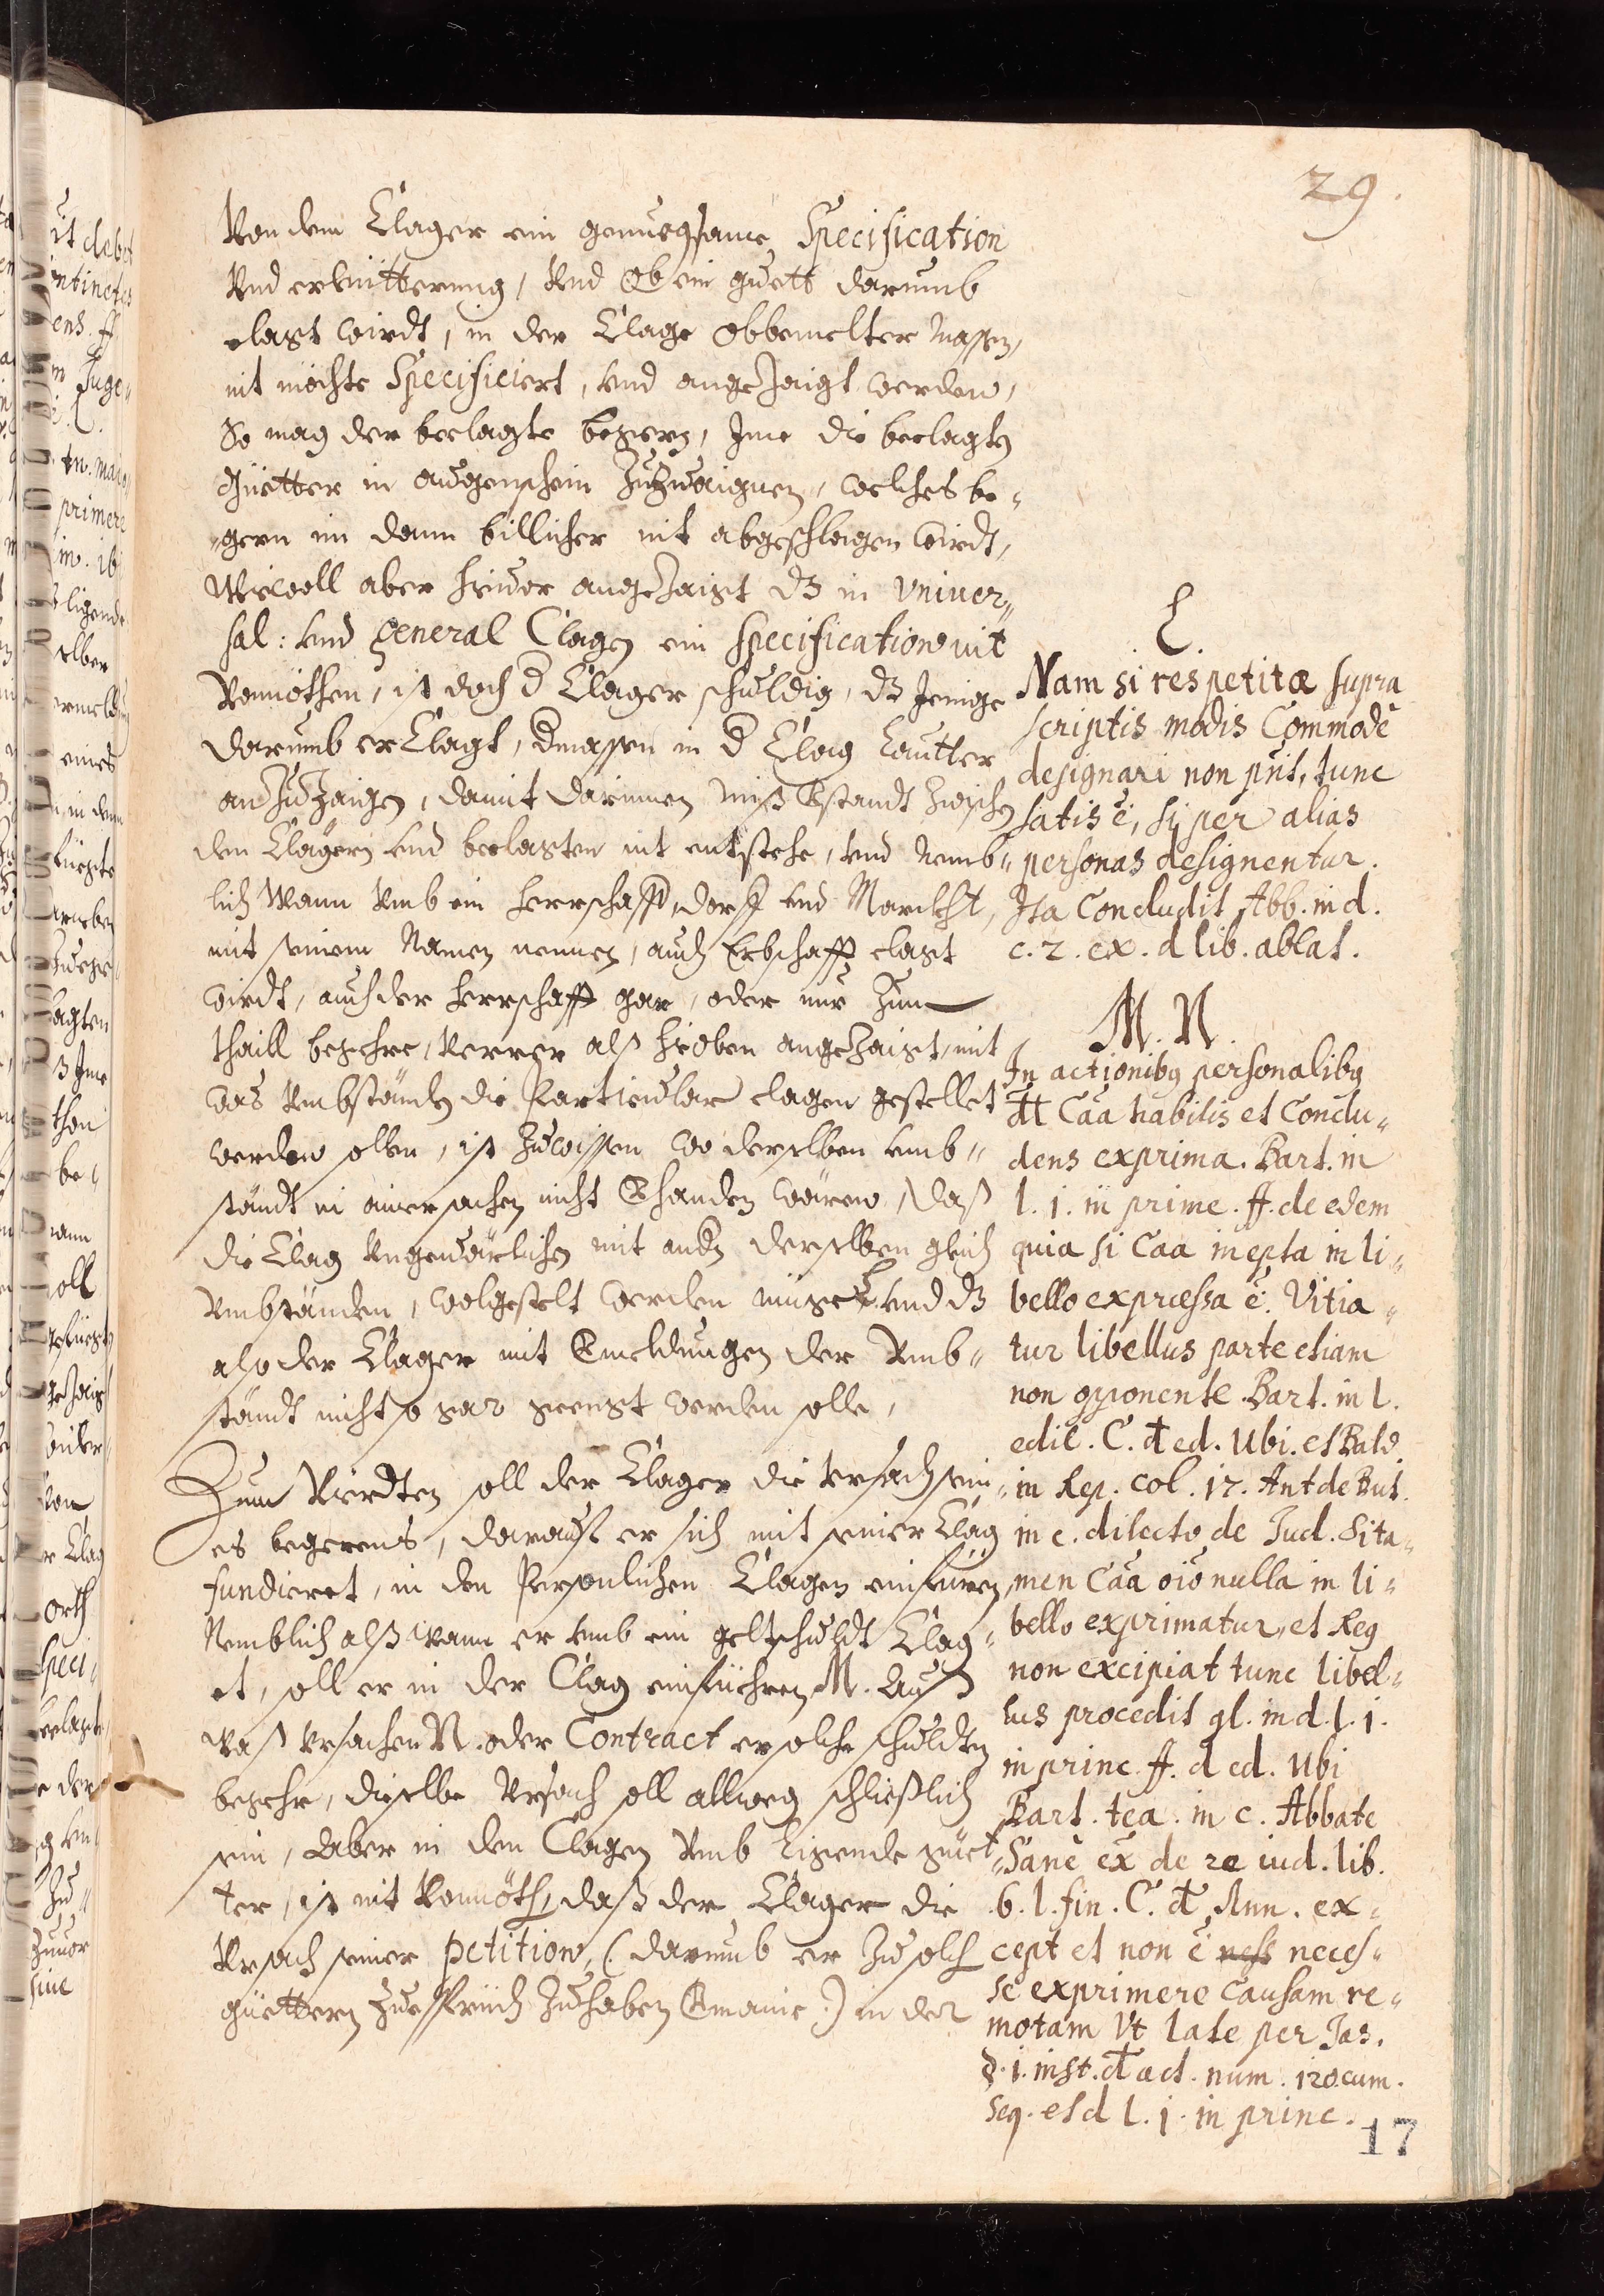 29.
Von dem Clager ein genuegsame Specification
Vnd erleütterung, Vnd Ob ein guett darumb
clagt wirdt, in der Clage obbemelter massen,
nit möchte Specificiert, vnd angezaigt werden,
So mag der beclagte begern, Ime die beclagten
Güetter in augenschein zuzuaignen, welches be-
-gern im dann billicher nit abgeschlagen wirdt,
Wiewoll aber hieuor angezaigt dz in Vniuer-
sal: vnd general Clagen ein specification nit
Vonnöthen, ist doch d Clager schuldig, dz Jenige
darumb er Clagt, dmassen in d Clag Lautter
anzuzaigen, damit darinnen miß Vstandt zwischen
den Clägern vnd beclagten nit entstehe, vnd Nemb-
lich Wann Vmb ein Herrschafft, dorff vnd Marckht,
mit seinem Namen nennen, auch Erbschafft clagt
wirdt, auch der Herrschafft gar, oder nur zum
thaill begehre, Verrer alß hieoben angezaigt, mit
was Vmbständen die Particular clagen gestellet
werden sollen, ist zuwissen wo derselben vmb-
ständt in ainer sachen nicht Vhanden wären, daß
die Clag Vngeuärlichen mit andn derselben gleich
Vmbständen, wolgestelt werden müge L vnd dz
also der Clager mit Vmeldungen der Vmb-
ständt nicht so gar geengt werden solle,
Zum Vierdten soll der Clager die Vrsach sein-
es begerens, darauf er sich mit seiner Clag
fundieret, in den Persönlichen Clagen einfüren,
Nemblich alß wann er vmb ein geltschuldt Clag-
et, soll er in der Clag einführen M. Auß
waß Vrsachen N. oder Contract er solche schulden
begehr, dieselbe Vrsach soll allweg schließlich
sein, Aber in den Clagen Vmb ligende güet-
ter, ist nit Vonnöth, daß der Clager die
Vrsach seiner petition, (: darumb er zu solch
güettern zuespruch zuhaben Vmaine :) in der
L
Nam si res petitæ supra
scriptis modis Commodè
designari non pnt, tunc
satis ē, si per alias
personas designentur.
Ita Concludit Abb. in d.
c. 2. ex. d lib. ablat.
M. N.
In actionibg personalibg
dt Caa habilis et Conclu-
dens exprima. Bart. in
l. 1. in prime. ff. de edem
quia si Caa inepta in li-
bello expressa ē. Vitia-
tur libellus parte etiam
non opponente. Bart. in l.
edit. C. d ed. Ubi. et Bald
in Rep. col. 17. Ant de But.
in c. dilecto de Jud. Si ta-
men Caa oīo nulla in li-
bello exprimatur, et Reg
non excipiat tunc libel-
lus procedit gl. in d. l. 1.
in princ. ff. d ed. Ubi
Bart. tea. in c. Abbate
Sanè ex de re iud. lib.
6. l. fin. C. d Ann. ex-
cept et non ē ness neces-
se exprimere Causam re-
motam Vt late per Jas.
§. 1. inst. d act. num. 120. cum.
seq. et d l. 1. in princ.
17